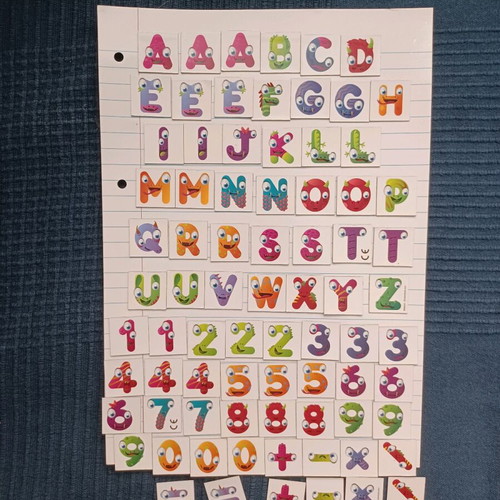 A A A B C D
E E E F G G H
I I J K L L
M M N N O O P
Q R R S S T CE T
U U V W X Y Z
1 1 2 2 2 3 3 3
4 4 4 5 5 5 6 6
6 7 7 CE 8 8 8 9 9
9 0 0 0 + - x